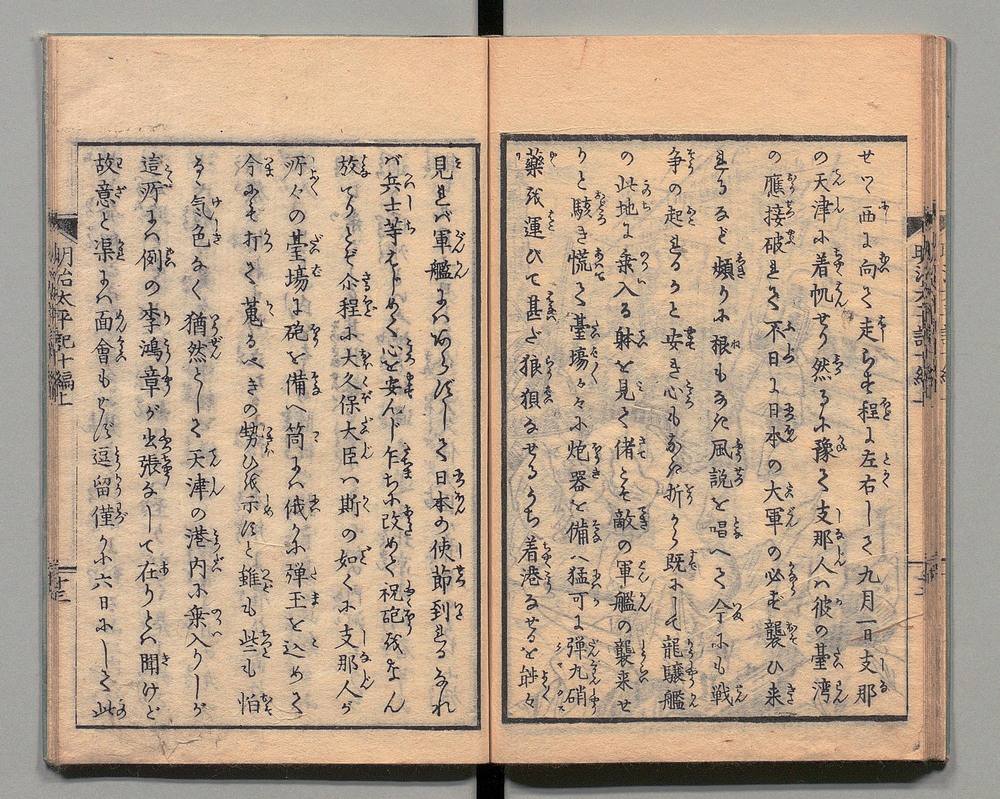 せつ西に向て走らせ程に左右して九月一日支那
の天津に着帆せり然るに豫て支那人は彼の臺湾
の應接破れて不日に日本の大軍の必ず襲ひ来
れるなど頻りに根もなき風説を唱へて今にも戦
争の起れるかと安き心もなき折から既にして龍驤艦
の此地に乗入る躰を見て偖こそ敵の軍艦の襲来せ
りと駭き慌て臺場々々に炮器を備へ猛可に弾丸硝
藥を運びて甚だ狼狽なせるうち着港なせるを能々
見れば軍艦にはあらずして日本の使節到れるなれ
バ兵士等はじめて心を安んじ乍ち改めて祝砲をなん
放てりとぞ企程に大久保大臣ハ斯の如くに支那人が
所々の臺場に砲を備へ筒には俄に弾玉を込めて
今にも打て蒐るべきの勢ひを示すと雖も些も怕
るゝ気色なく猶然として天津の港内に乗入りしが
這所には例の李鴻章が出張なして在りとは聞けど
故意と渠には面會もせず逗留僅かに六日にして此
明治太平記十編上
十二